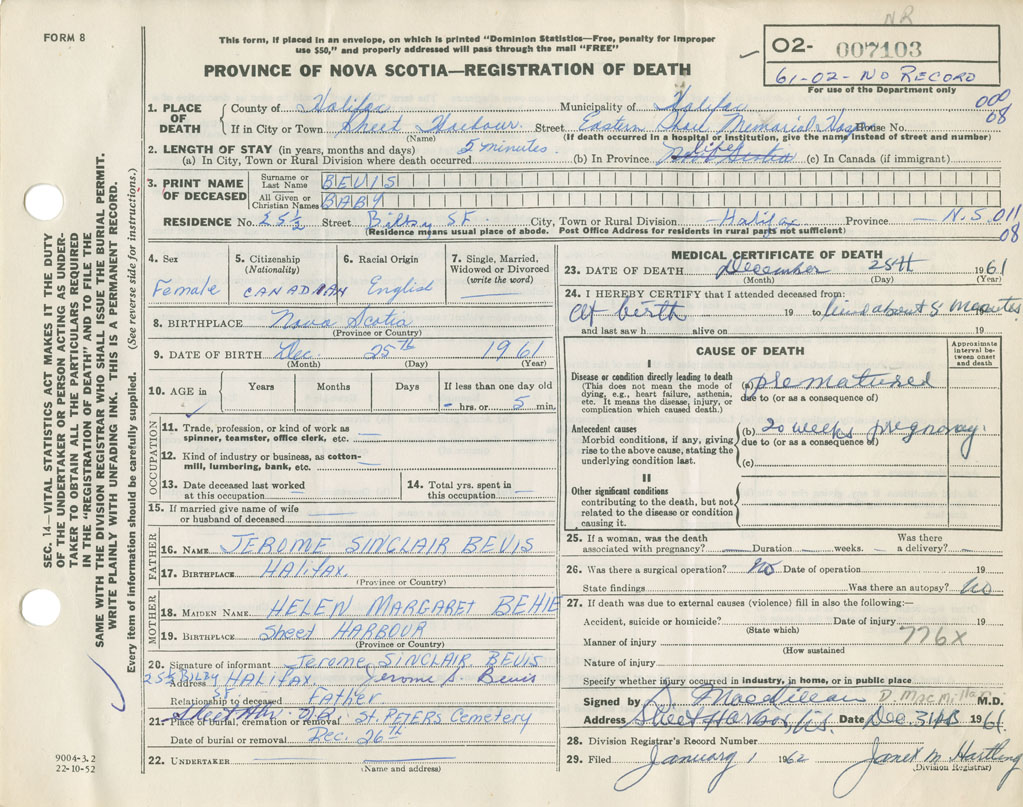 NR
FORM 8
This form, if placed in an envelope, on which is printed "Dominion Statistics—Free, penalty for improper
use $50," and properly addressed will pass through the mail "FREE"
PROVINCE OF NOVA SCOTIA—REGISTRATION OF DEATH
02- 007103
61-02-NO RECORD
For use of the Department only
000
08
1. PLACE OF DEATH
County of Halifax Municipality of Halifax
If in City or Town Sheet Harbour Street Eastern Shore Memorial Hosp. House No.
(Name) (If death occurred in a hospital or institution, give the name instead of street and number)
2. LENGTH OF STAY (in years, months and days)
(a) In City, Town or Rural Division where death occurred 5 minutes (b) In Province life Nova Scotia (c) In Canada (if immigrant)
3. PRINT NAME OF DECEASED
Surname or Last Name BEVIS
All Given or Christian Names BABY
RESIDENCE No. 25½ Street Bilby St. City, Town or Rural Division Halifax Province N.S. 011
08
(Residence means usual place of abode. Post Office Address for residents in rural parts not sufficient)
4. Sex
Female
5. Citizenship (Nationality)
CANADIAN
6. Racial Origin
English
7. Single, Married, Widowed or Divorced (write the word)
8. BIRTHPLACE Nova Scotia
(Province or Country)
9. DATE OF BIRTH Dec. 25th 1961
(Month) (Day) (Year)
10. AGE in Years Months Days If less than one day old
hrs. or 5 min.
OCCUPATION
11. Trade, profession, or kind of work as spinner, teamster, office clerk, etc.
12. Kind of industry or business, as cotton-mill, lumbering, bank, etc.
13. Date deceased last worked at this occupation
14. Total yrs. spent in this occupation
15. If married give name of wife or husband of deceased
FATHER
16. NAME JEROME SINCLAIR BEVIS
17. BIRTHPLACE HALIFAX
(Province or Country)
MOTHER
18. MAIDEN NAME HELEN MARGARET BEHIE
19. BIRTHPLACE Sheet HARBOUR
(Province or Country)
20. Signature of informant Jerome SINCLAIR BEVIS
Address 25½ BILBY ST. HALIFAX. Jerome S. Bevis
Relationship to deceased Father
21. Place of burial, cremation or removal St. PETERS Cemetery
Date of burial or removal Dec. 26th
22. UNDERTAKER
(Name and address)
MEDICAL CERTIFICATE OF DEATH
23. DATE OF DEATH December 25th 1961
(Month) (Day) (Year)
24. I HEREBY CERTIFY that I attended deceased from:
At birth 19 to lived about 5 minutes
and last saw h alive on 19
CAUSE OF DEATH
Approximate interval between onset and death
I
Disease or condition directly leading to death
(This does not mean the mode of dying, e.g., heart failure, asthenia, etc. It means the disease, injury, or complication which caused death.)
(a) prematured
due to (or as a consequence of)
Antecedent causes
Morbid conditions, if any, giving rise to the above cause, stating the underlying condition last.
(b) 20 weeks pregnancy.
due to (or as a consequence of)
(c)
II
Other significant conditions
contributing to the death, but not related to the disease or condition causing it.
25. If a woman, was the death associated with pregnancy? Duration weeks. Was there a delivery?
26. Was there a surgical operation? No Date of operation 19
State findings Was there an autopsy? No
27. If death was due to external causes (violence) fill in also the following:—
Accident, suicide or homicide? Date of injury 19
(State which)
776X
Manner of injury
(How sustained
Nature of injury
Specify whether injury occurred in industry, in home, or in public place
Signed by D. MacMillan D. MacMillan M.D.
Address Sheet Harbour N.S. Date Dec. 31st 1961
28. Division Registrar's Record Number
29. Filed January 1 1962 Janet M. Hartling
(Division Registrar)
SEC. 14—VITAL STATISTICS ACT MAKES IT THE DUTY
OF THE UNDERTAKER OR PERSON ACTING AS UNDER-
TAKER TO OBTAIN ALL THE PARTICULARS REQUIRED
IN THE "REGISTRATION OF DEATH" AND TO FILE THE
SAME WITH THE DIVISION REGISTRAR WHO SHALL ISSUE THE BURIAL PERMIT.
WRITE PLAINLY WITH UNFADING INK. THIS IS A PERMANENT RECORD.
Every item of information should be carefully supplied. (See reverse side for instructions.)
9004-3.2
22-10-52